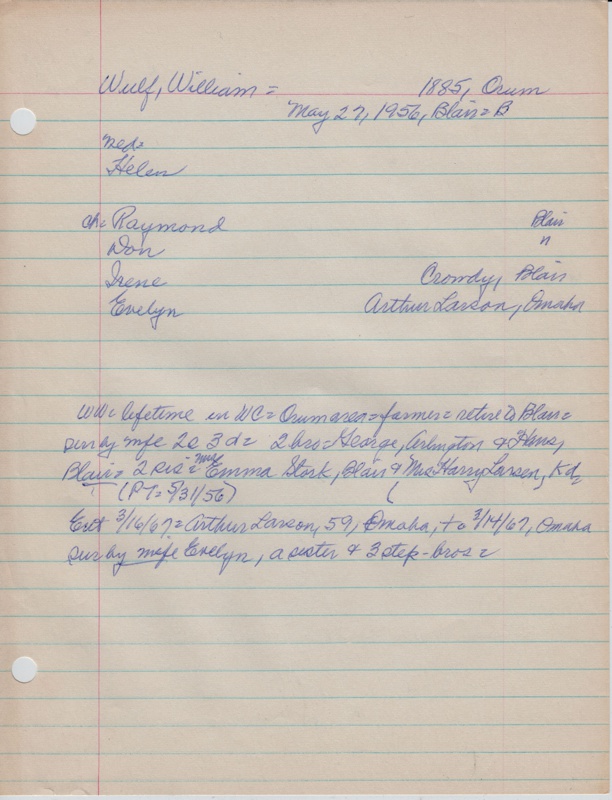 Wulf, William = 1885, Orum
May 27, 1956, Blair = B
med=
Helen
ch= Raymond Blair
Don "
Irene Crowdy, Blair
Evelyn Arthur Larson, Omaha
WW = lifetime in WC = Orum area = farmer = retire to Blair =
sur by wife 2s 3d = 2 bro = George, Arlington & Hans,
Blair = 2 sis = Mrs Emma Stork, Blair & Mrs Harry Larsen, Kd=
(PT = 5/31/56)
Ext 3/16/67 = Arthur Larson, 59, Omaha, + 3/14/67, Omaha
sur by wife Evelyn, a sister & 3 step-bros =